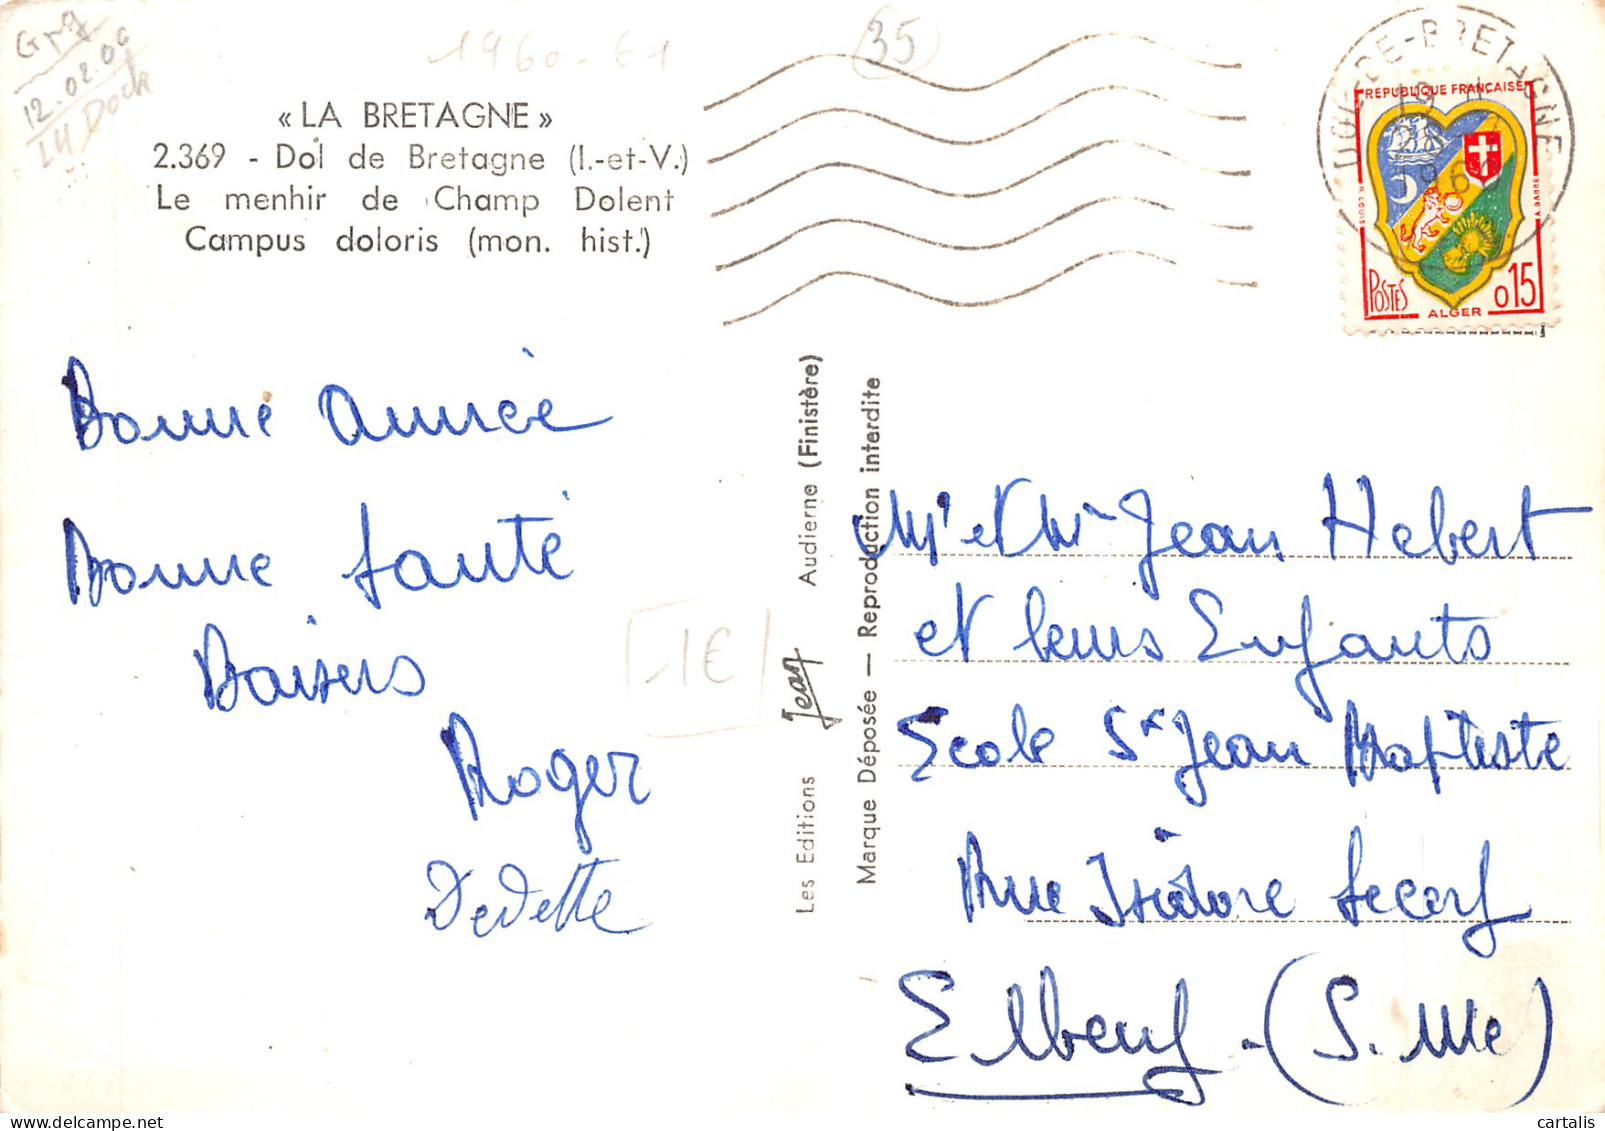 Grg
12.02.00
LH Dock
1960-61
35
« LA BRETAGNE »
2.369 - Dol de Bretagne (I.-et-V.)
Le menhir de Champ Dolent
Campus doloris (mon. hist.)
DOL-DE-BRETAGNE
19 H
28
1960
REPUBLIQUE FRANÇAISE
POSTES
0,15
ALGER
Bonne année
Bonne santé
Baisers
Roger
Dedette
1€
Les Editions Jean Audierne (Finistère)
Marque Déposée — Reproduction interdite
Mr et Mme Jean Hebert
et leurs Enfants
Ecole St Jean Baptiste
Rue Isidore Lecerf
Elbeuf - (S. Me)
cartalis